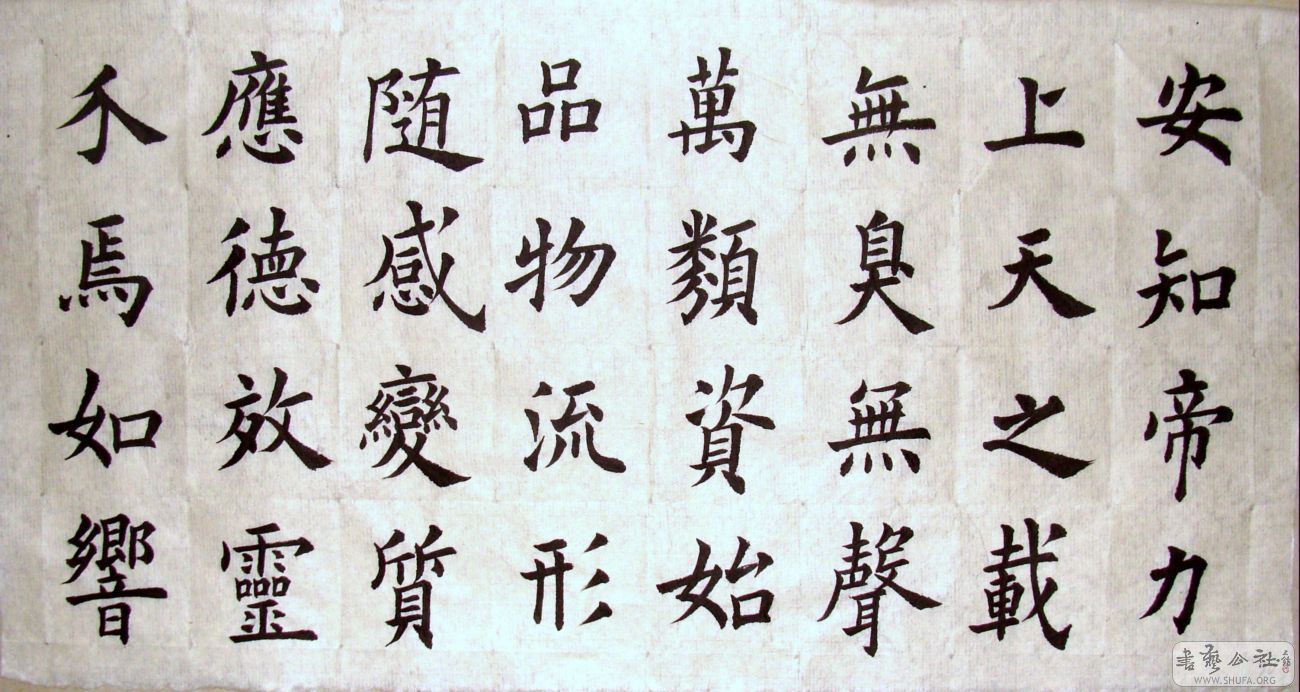 安知帝力
上天之載
無臭無聲
萬類資始
品物流形
随感變質
應德效靈
介焉如響
書藝公社
WWW.SHUFA.ORG